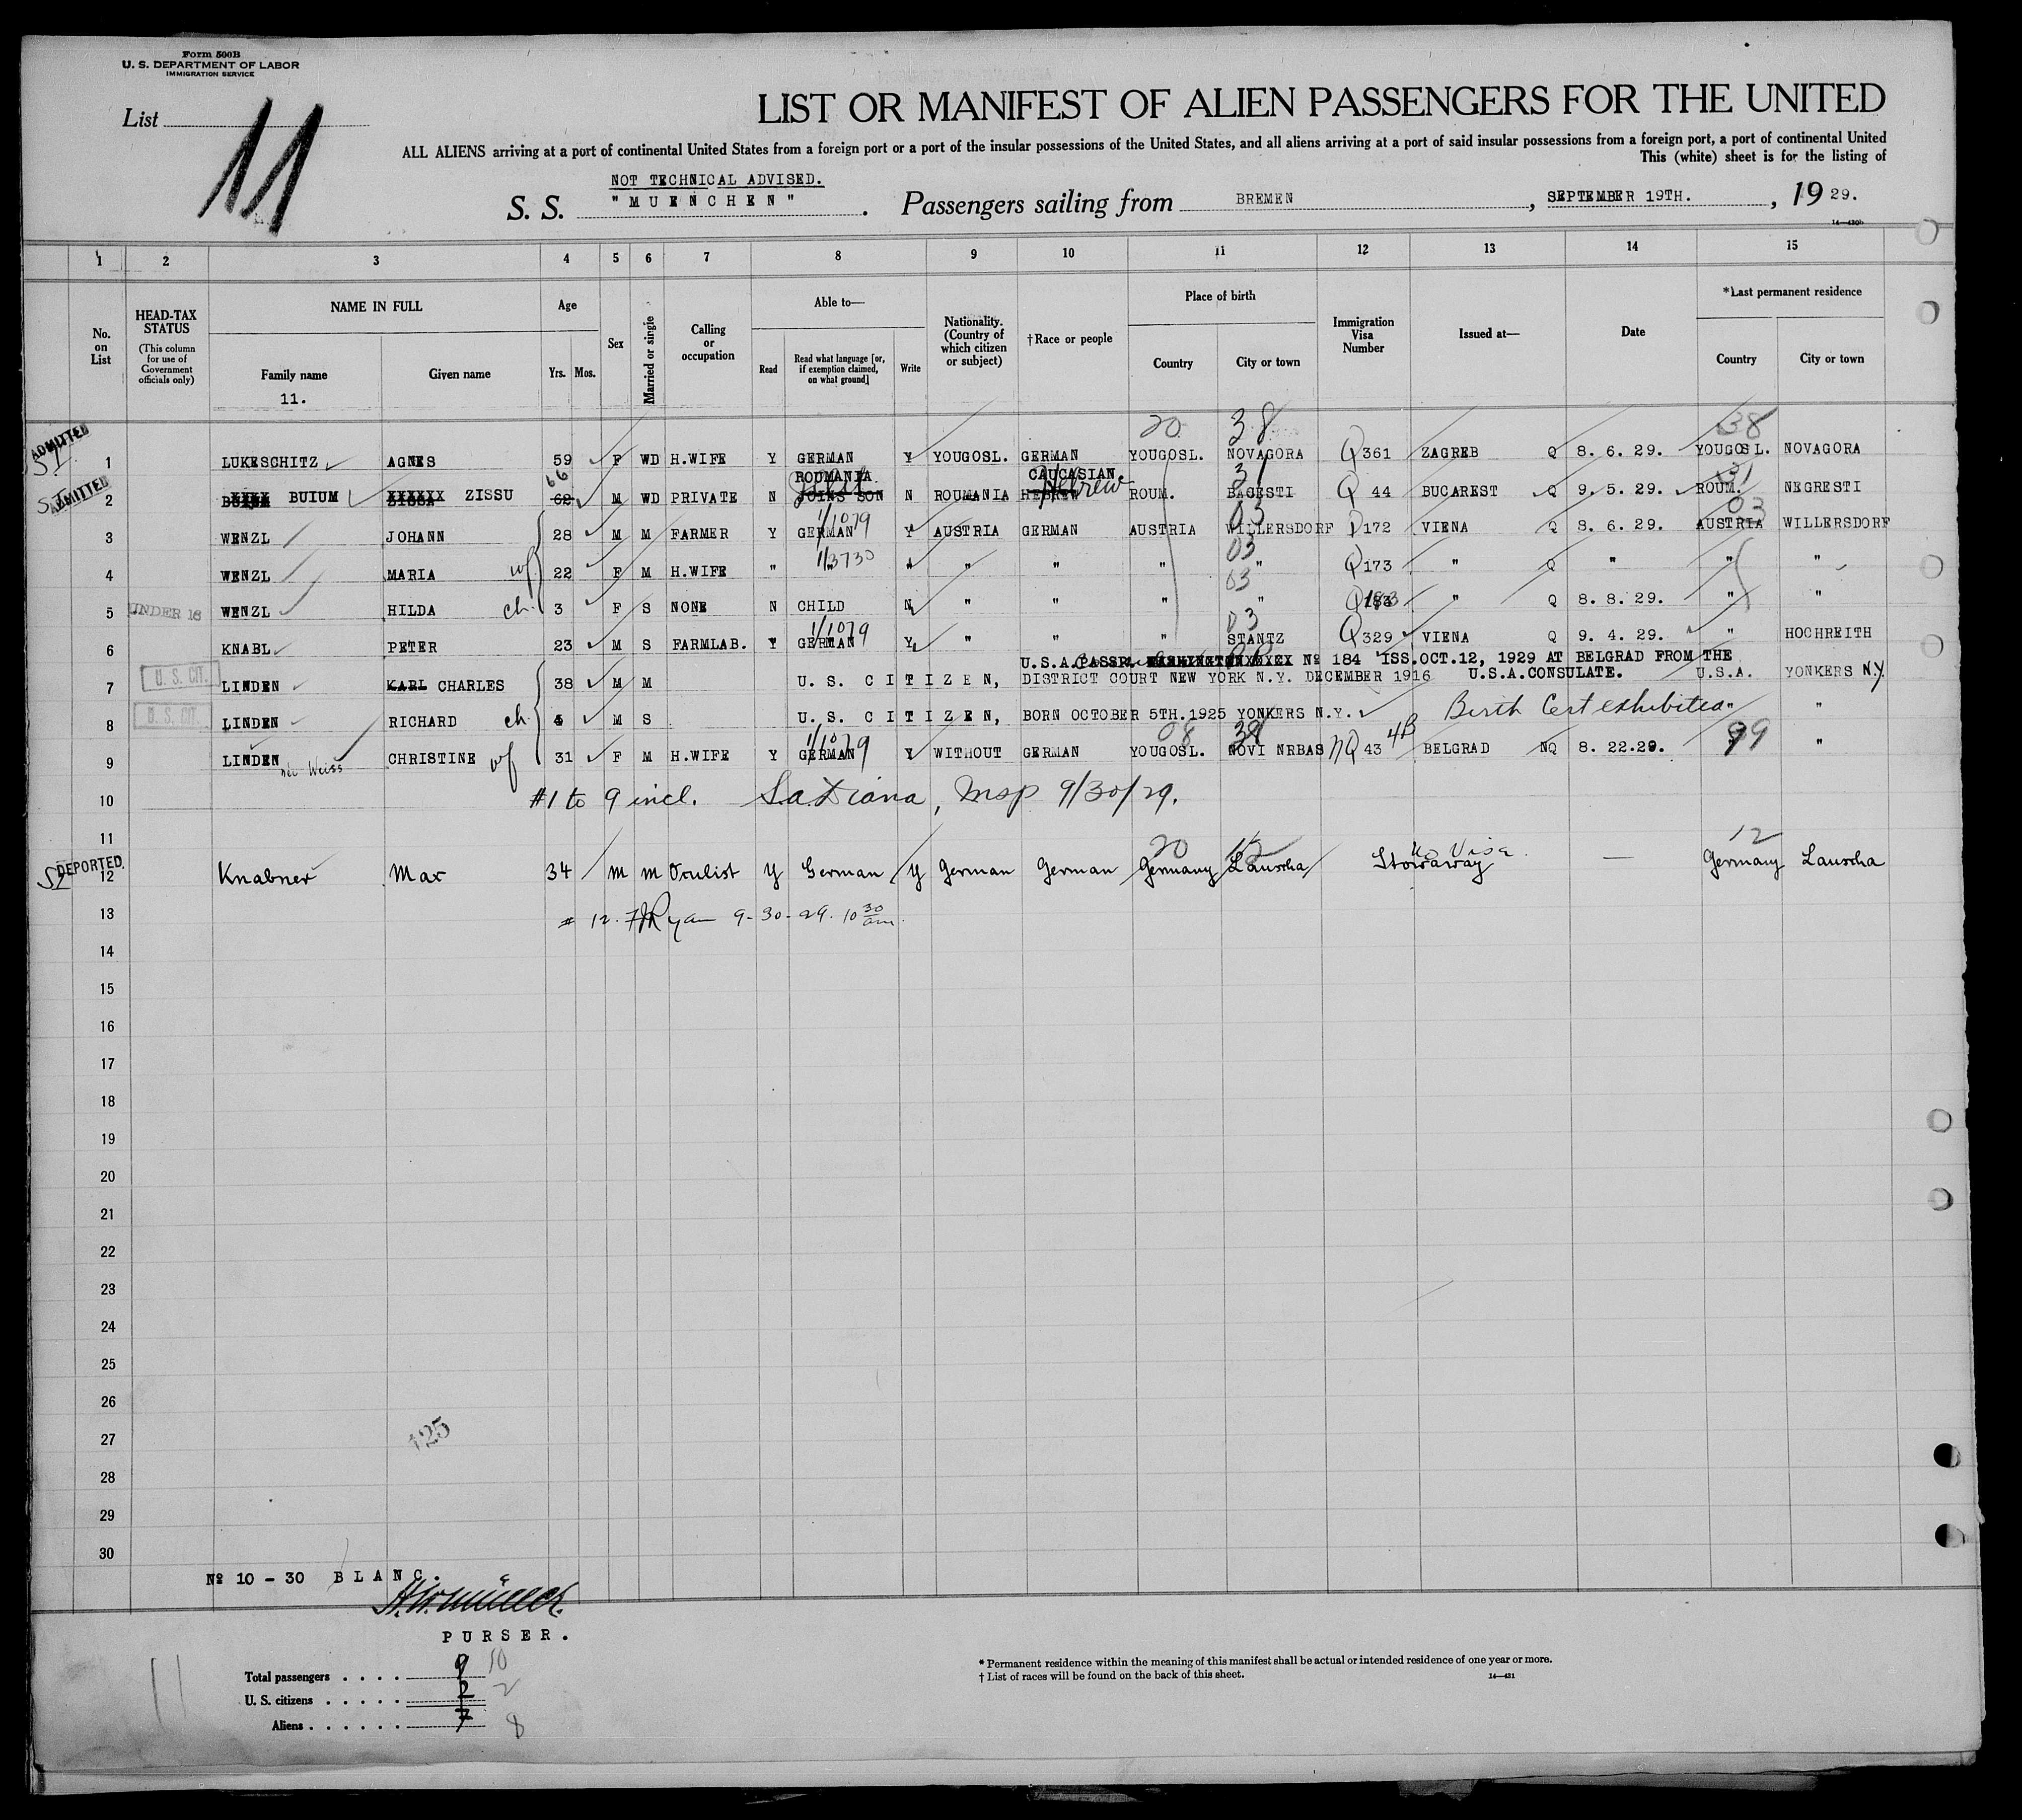 Form 500B
U. S. DEPARTMENT OF LABOR
IMMIGRATION SERVICE
List 11
LIST OR MANIFEST OF ALIEN PASSENGERS FOR THE UNITED
ALL ALIENS arriving at a port of continental United States from a foreign port or a port of the insular possessions of the United States, and all aliens arriving at a port of said insular possessions from a foreign port, a port of continental United
This (white) sheet is for the listing of
NOT TECHNICAL ADVISED.
S. S. "MUENCHEN". Passengers sailing from BREMEN, SEPTEMBER 19TH., 1929.
14—430b
1 2 3 4 5 6 7 8 9 10 11 12 13 14 15
No. on List
HEAD-TAX STATUS
(This column for use of Government officials only)
NAME IN FULL
Family name
11.
Given name
Age
Yrs. Mos.
Sex
Married or single
Calling or occupation
Able to—
Read
Read what language [or, if exemption claimed, on what ground]
Write
Nationality. (Country of which citizen or subject)
†Race or people
Place of birth
Country
City or town
Immigration Visa Number
Issued at—
Date
*Last permanent residence
Country
City or town
20 38 38
ADMITTED SI 1 LUKESCHITZ AGNES 59 F WD H.WIFE Y GERMAN Y YOUGOSL. GERMAN YOUGOSL. NOVAGORA Q 361 ZAGREB Q 8. 6. 29. YOUGOSL. NOVAGORA
66 ROUMANIA CAUCASIAN 31 31
ADMITTED SI 2 BUIUM ZISSU 62 M WD PRIVATE N JOINS SON N ROUMANIA HEBREW Hebrew ROUM. BAGESTI Q 44 BUCAREST Q 9. 5. 29. ROUM. NEGRESTI
1/1079 03 03
3 WENZL JOHANN 28 M M FARMER Y GERMAN Y AUSTRIA GERMAN AUSTRIA WILLERSDORF Q 172 VIENA Q 8. 6. 29. AUSTRIA WILLERSDORF
1/3730 03
4 WENZL MARIA wf 22 F M H.WIFE " " " " " " " Q 173 " Q " " "
03
UNDER 16 5 WENZL HILDA ch. 3 F S NONE N CHILD N " " " " Q 183 " Q 8. 8. 29. " "
1/1079 03
6 KNABL PETER 23 M S FARMLAB. Y GERMAN Y " " " STANTZ Q 329 VIENA Q 9. 4. 29. " HOCHREITH
U.S.A.PASSP. № 184 ISS.OCT.12, 1929 AT BELGRAD FROM THE
U. S. CIT. 7 LINDEN KARL CHARLES 38 M M U. S. CITIZEN, DISTRICT COURT NEW YORK N.Y. DECEMBER 1916 U.S.A.CONSULATE. U.S.A. YONKERS N.Y.
U. S. CIT. 8 LINDEN RICHARD ch 4 M S U. S. CITIZEN, BORN OCTOBER 5TH.1925 YONKERS N.Y. Birth Cert exhibited " "
1/1079 08 4B
9 LINDEN nee Weiss CHRISTINE wf 31 F M H.WIFE Y GERMAN Y WITHOUT GERMAN YOUGOSL. NOVI NRBAS NQ 43 BELGRAD NQ 8. 22.29. 99 "
10 #1 to 9 incl. 9/30/29.
11
20 12 No Visa 12
DEPORTED SI 12 Knabner Max 34 M M Oculist Y German Y German German Germany Lauscha Stowaway — Germany Lauscha
13 # 12. Ryan 9-30-29. 10 30 am.
14
15
16
17
18
19
20
21
22
23
24
25
26
27
28
29
30
125
№ 10 - 30 BLANC.
PURSER.
Total passengers . . . . 9 10
U. S. citizens . . . . . 2 2
Aliens . . . . . . 7 8
11
* Permanent residence within the meaning of this manifest shall be actual or intended residence of one year or more.
† List of races will be found on the back of this sheet.
14—431